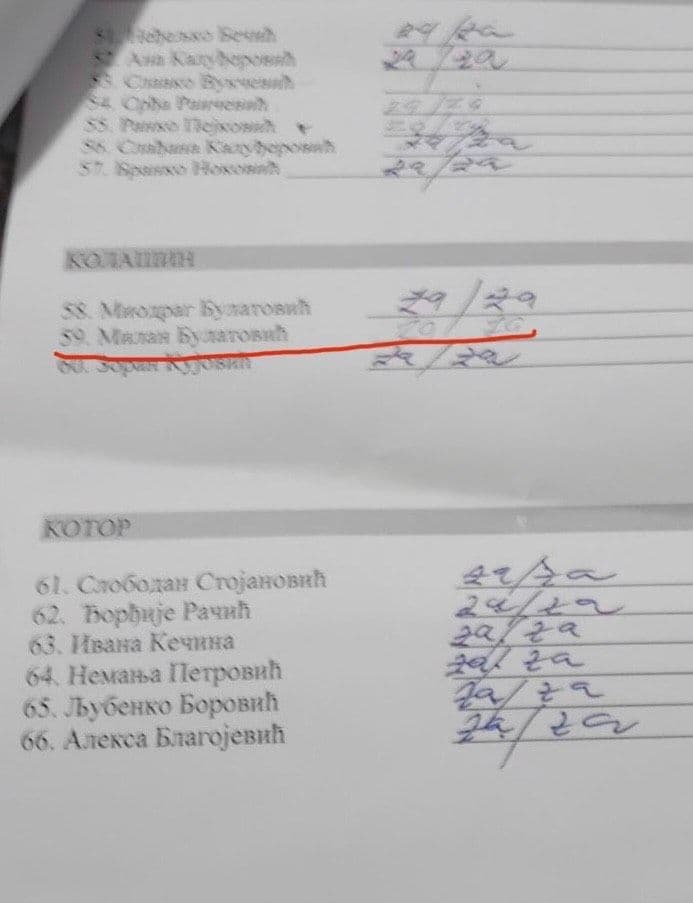 51. Недељко Бечић za/za
52. Ана Калуђеровић za/za
53. Славко Вукчевић
54. Срђа Ранчевић za/za
55. Ранко Пејковић
56. Слађана Калуђеровић za/za
57. Бранко Ноковић za/za
КОЛАШИН
58. Миодраг Булатовић za/za
59. Милан Булатовић za za
60. Зоран Кујовић za/za
КОТОР
61. Слободан Стојановић za/za
62. Ђорђије Рачић za/za
63. Ивана Кечина za/za
64. Немања Петровић za/za
65. Љубенко Боровић za/za
66. Алекса Благојевић za/za